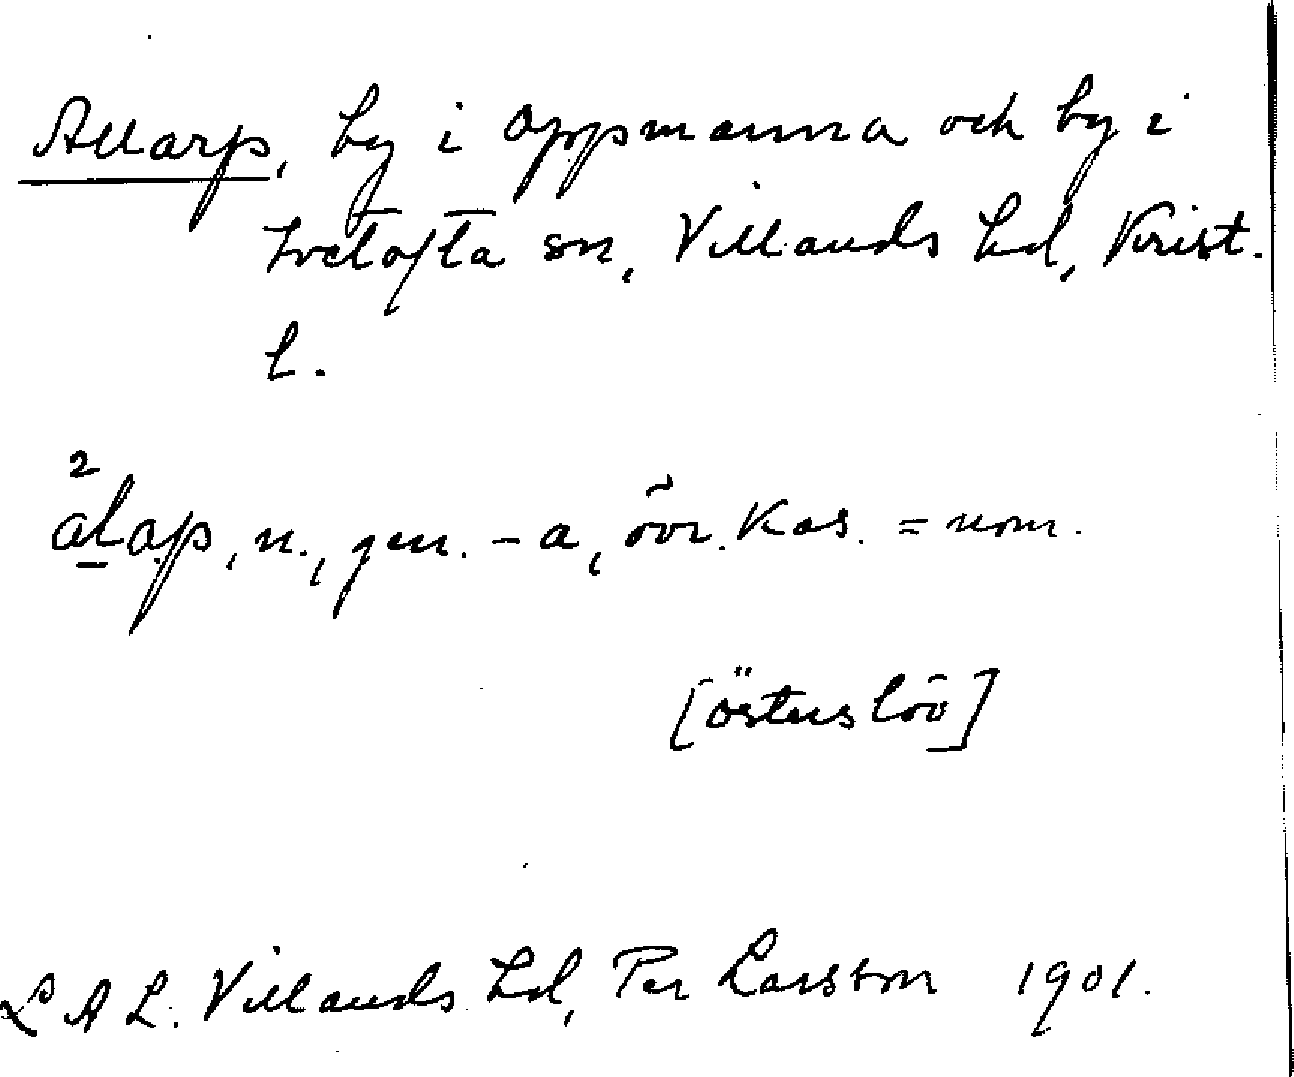 Allarp, by i Oppmanna och by i
Ivetofta sn, Villands hd, Krist.
l.
²alap, n., gen. -a, övr. kas. = nom.
[Österslöv]
LAL. Villands hd, Per Larsson 1901.